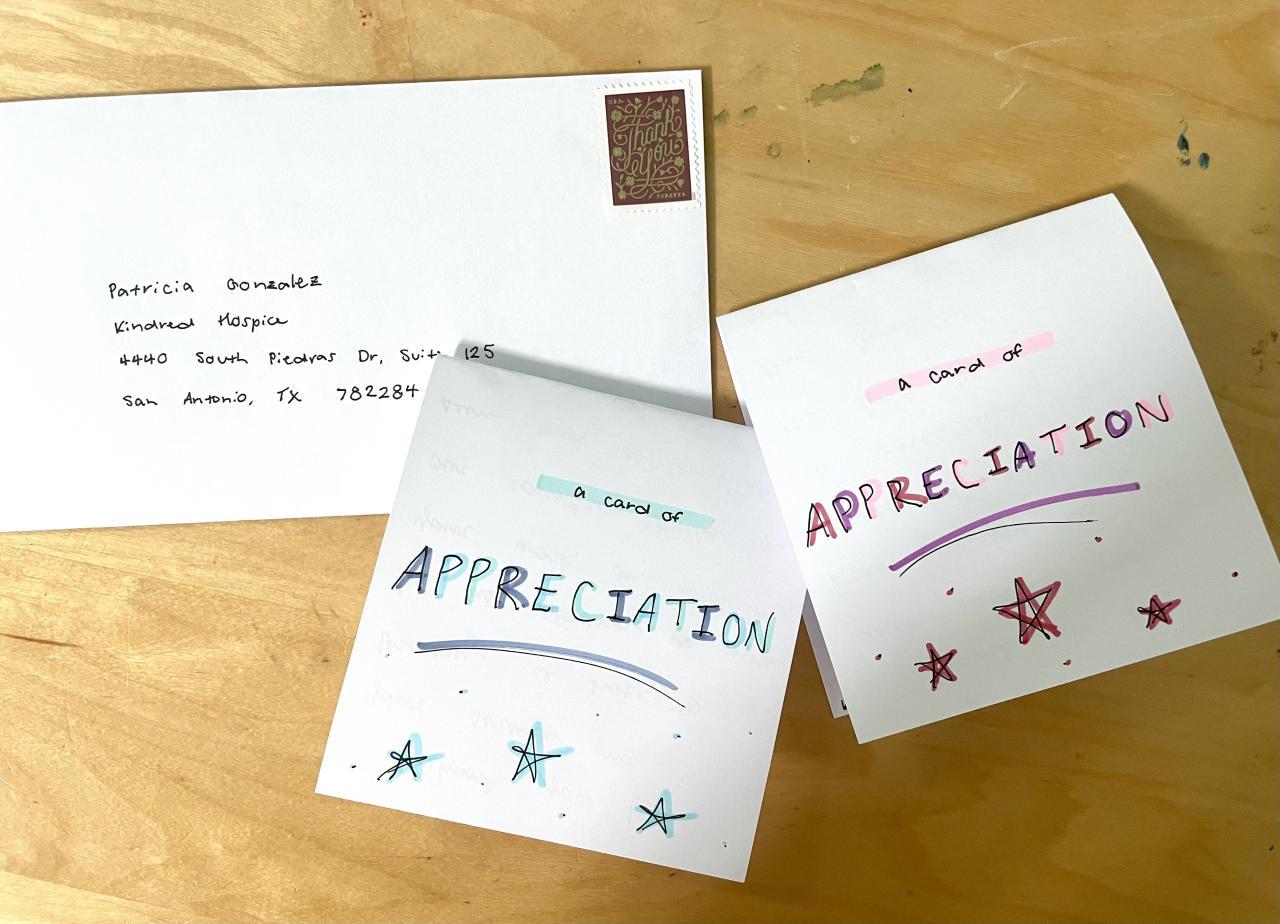 USA
Thank
you
FOREVER
Patricia Gonzalez
Kindred Hospice
4440 South Piedras Dr, 125
San Antonio, TX 782284
a card of
APPRECIATION
a card of
APPRECIATION